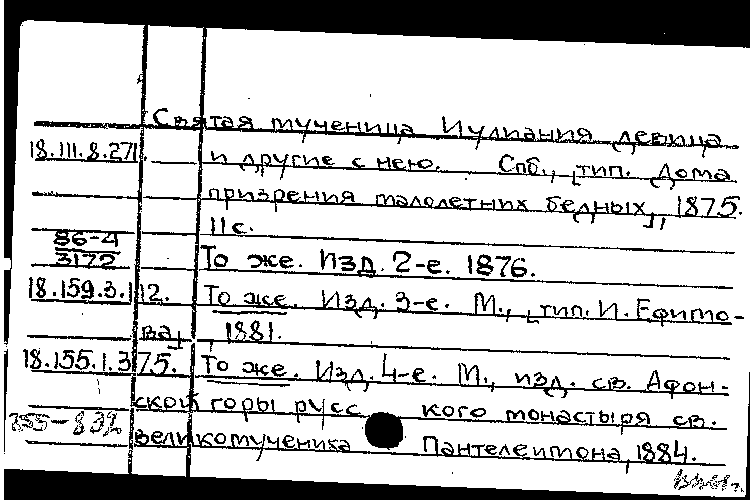 Святая мученица Иулиания девица
18.111.8.271. и другие с нею. Спб., [тип. Дома
призрения малолетних бедных], 1875.
11 с.
86-4
3172
То же. Изд. 2-е. 1876.
18.159.3.112. То же. Изд. 3-е. М., [тип. И. Ефимо-
ва], 1881.
18.155.1.375. То же. Изд. 4-е. М., изд. св. Афон-
ской горы русс кого монастыря св.
великомученика Пантелеимона, 1884.